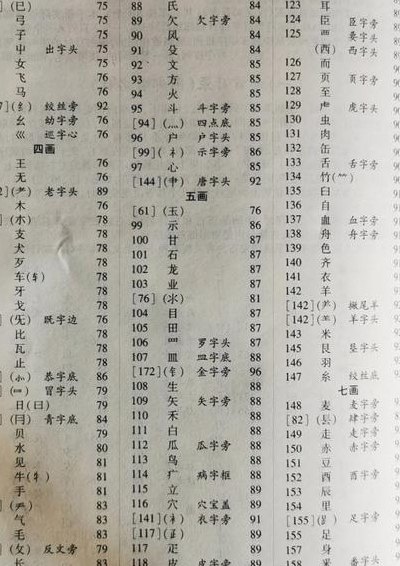 ](巳) 75
弓 75
子 75
屮 出字头 75
女 75
飞 76
马 76
7](纟) 绞丝旁 92
幺 幼字旁 76
巛 巡字心 76
四画
王 76
无 76
2](耂) 老字头 89
木 76
](朩) 78
支 78
犬 78
歹 78
车(车) 78
牙 78
戈 78
](旡) 既字边 76
比 78
瓦 78
止 78
](⺗) 恭字底 86
](⺜) 冒字头 79
日(曰) 79
](⺝) 青字底 84
贝 79
水 80
见 81
牛(牜) 81
手 81
] 83
气 83
毛 83
](攵) 反文旁 79
88 氏
89 欠 欠字旁 84
90 风 84
91 殳 84
92 文 85
93 方 85
94 火 85
95 斗 斗字旁 86
[94](灬) 四点底 85
96 户 户字头 86
[99](礻) 示字旁 86
97 心 85
[144](肀) 唐字头 92
五画
[61](玉) 76
99 示 86
100 甘 87
101 石 87
102 龙 87
103 业 87
[76](氺) 81
104 目 87
105 田 87
106 罒 罗字头 87
107 皿 皿字底 88
[172](钅) 金字旁 96
108 生 88
109 矢 矢字旁 88
110 禾 88
111 白 88
112 瓜 瓜字旁 88
113 鸟 88
114 疒 病字框 88
115 立 89
116 穴 穴宝盖 89
[141](衤) 衣字旁 91
[117](⺪) 89
117 疋 89
118 皮 皮字旁
123 耳
124 臣 臣字旁
125 覀 要字头
(西) 西字头
126 而
127 页 页字旁
128 至
129 虍 虎字头
130 虫
131 肉
132 缶
133 舌 舌字旁
134 竹(⺮)
135 臼
136 自
137 血 血字旁
138 舟 舟字旁
139 色
140 齐
141 衣
142 羊
[142](⺶) 撇尾羊
[142](⺷) 羊字头
143 米
145 艮 垦字头
146 羽
147 糸 绞丝底
七画
148 麦 麦字旁
[82](镸) 肆字旁
149 走 走字旁
150 赤 赤字旁
151 豆
152 酉 酉字旁
153 辰
154 里
[155](⻊) 足字旁
155 足
157 身
158 釆 番字头